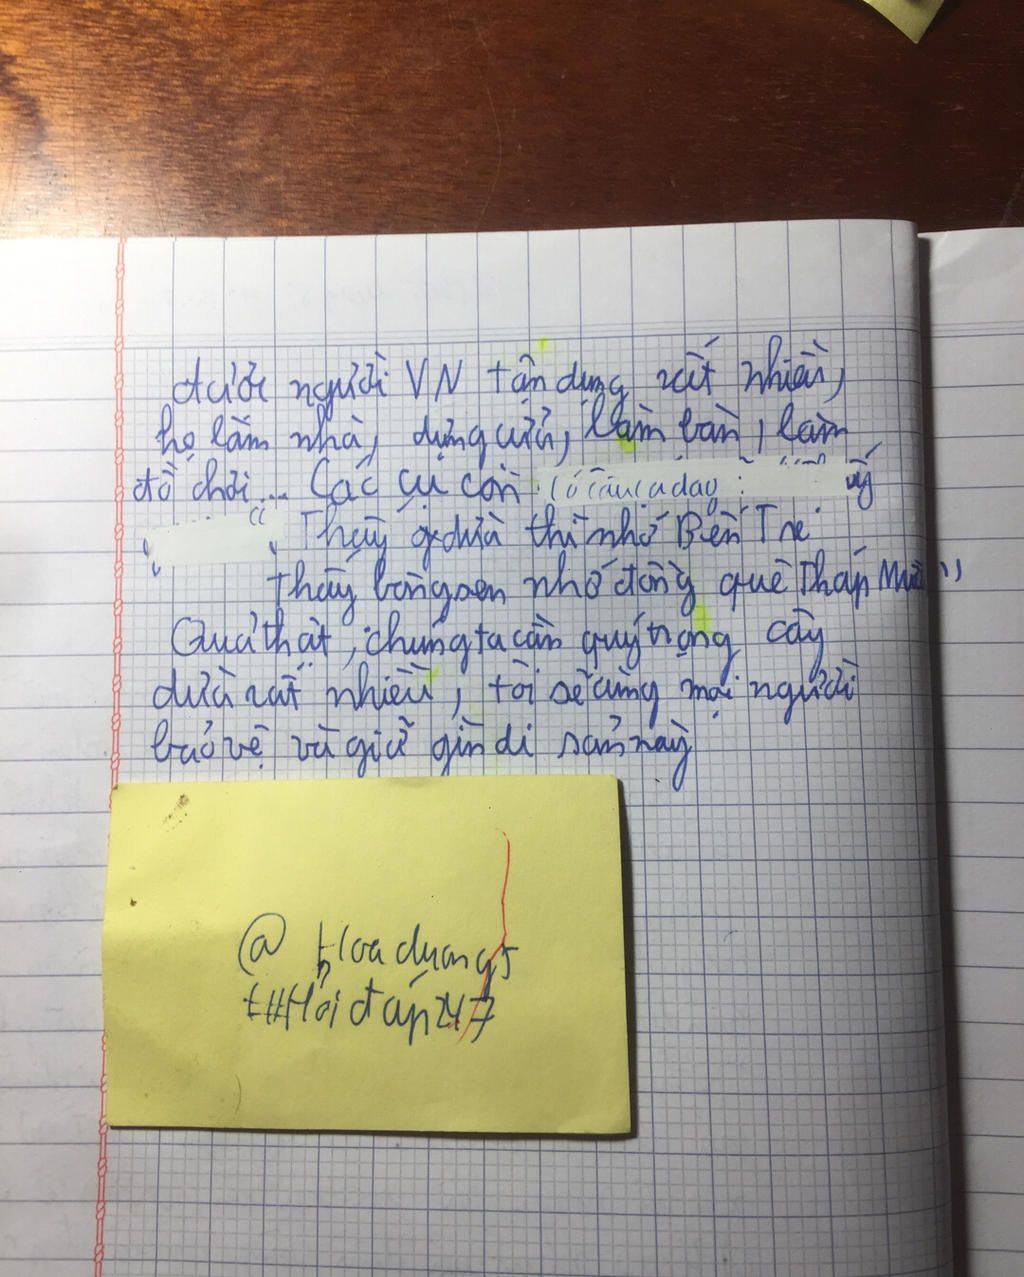 được người VN tận dụng rất nhiều,
họ làm nhà, dựng cửa, làm bàn, làm
đồ chơi... Các cụ còn có câu ca dao:
Thấy dừa thì nhớ Bến Tre
Thấy bông sen nhớ đồng quê Tháp Mười"
Quả thật, chúng ta cần quý trọng cây
dừa rất nhiều, tôi sẽ cùng mọi người
bảo vệ và giữ gìn di sản này
@Hoaduong5
#Hỏiđáp247